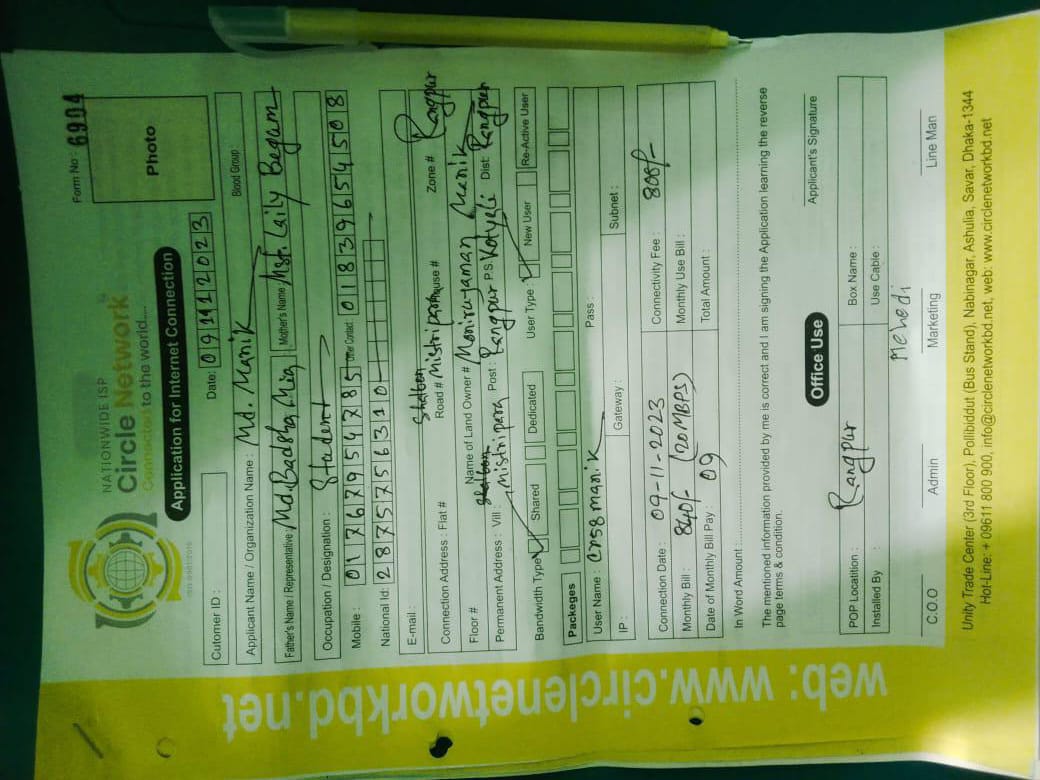 NATIONWIDE ISP
Circle Network
Connected to the world....
Form No : 6904
Application for Internet Connection
Photo
Cutomer ID :
Date: 09112023
Applicant Name / Organization Name : Md. Manik
Blood Group
Father's Name / Representative : Md. Badsha Mia Mother's Name : Mst. Laily Begam
Occupation / Designation : Student
Mobile : 01767954785 Other Contact 01839654508
National Id: 2875756310
E-mail:
Connection Address : Flat # Road # Shalbon Mistripara House # Zone # Rangpur
Floor # Name of Land Owner # Moniruzaman Manik
Permanent Address : Vill : Shalbon Mistripara Post : Rangpur P.S Kotyali Dist: Rangpur
Bandwidth Type Shared Dedicated User Type : New User Re-Active User
Packeges
User Name : crsg manik Pass :
IP : Gateway : Subnet :
Connection Date : 09-11-2023 Connectivity Fee : 808/-
Monthly Bill : 840/- (20 MBPS) Monthly Use Bill :
Date of Monthly Bill Pay : 09 Total Amount :
In Word Amount :
The mentioned information provided by me is correct and I am signing the Application learning the reverse
page terms & condition.
Applicant's Signature
Office Use
POP Locatition : Rangpur Box Name :
Installed By : Use Cable :
Mehedi
C.O.O Admin Marketing Line Man
Unity Trade Center (3rd Floor), Pollibiddut (Bus Stand), Nabinagar, Ashulia, Savar, Dhaka-1344
Hot-Line: + 09611 800 900, info@circlenetworkbd.net, web: www.circlenetworkbd.net
web: www.circlenetworkbd.net